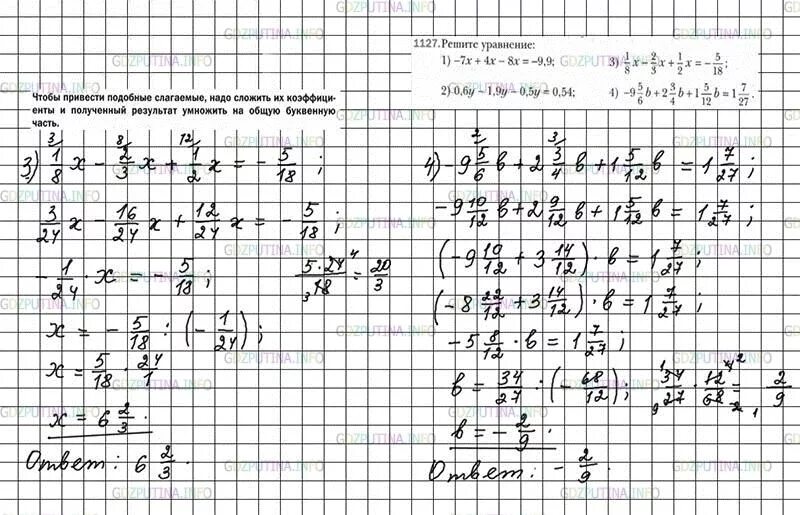 GDZPUTINA.INFO
1127. Решите уравнение:
1) −7x + 4x − 8x = −9,9;
3) 1/8 x − 2/3 x + 1/2 x = −5/18;
2) 0,6y − 1,9y − 0,5y = 0,54;
4) −9 5/6 b + 2 3/4 b + 1 5/12 b = 1 7/27.
Чтобы привести подобные слагаемые, надо сложить их коэффици-
енты и полученный результат умножить на общую буквенную
часть.
3 8 12
3) 1/8 x − 2/3 x + 1/2 x = − 5/18 ;
3/24 x − 16/24 x + 12/24 x = − 5/18 ;
− 1/24 · x = − 5/18 ;
5·24 4 / 3 18 = 20/3
x = − 5/18 : (− 1/24) ;
x = 5/18 · 24/1
x = 6 2/3 .
Ответ: 6 2/3 .
2 3
4) −9 5/6 b + 2 3/4 b + 1 5/12 b = 1 7/27 ;
−9 10/12 b + 2 9/12 b + 1 5/12 b = 1 7/27 ;
(−9 10/12 + 3 14/12) · b = 1 7/27 ;
(−8 22/12 + 3 14/12) · b = 1 7/27 ;
−5 8/12 · b = 1 7/27 ;
b = 34/27 : (− 68/12) ;
1 34 / 9 27 · 12 4 2 / 68 2 1 = 2/9
b = − 2/9 .
Ответ: − 2/9 .